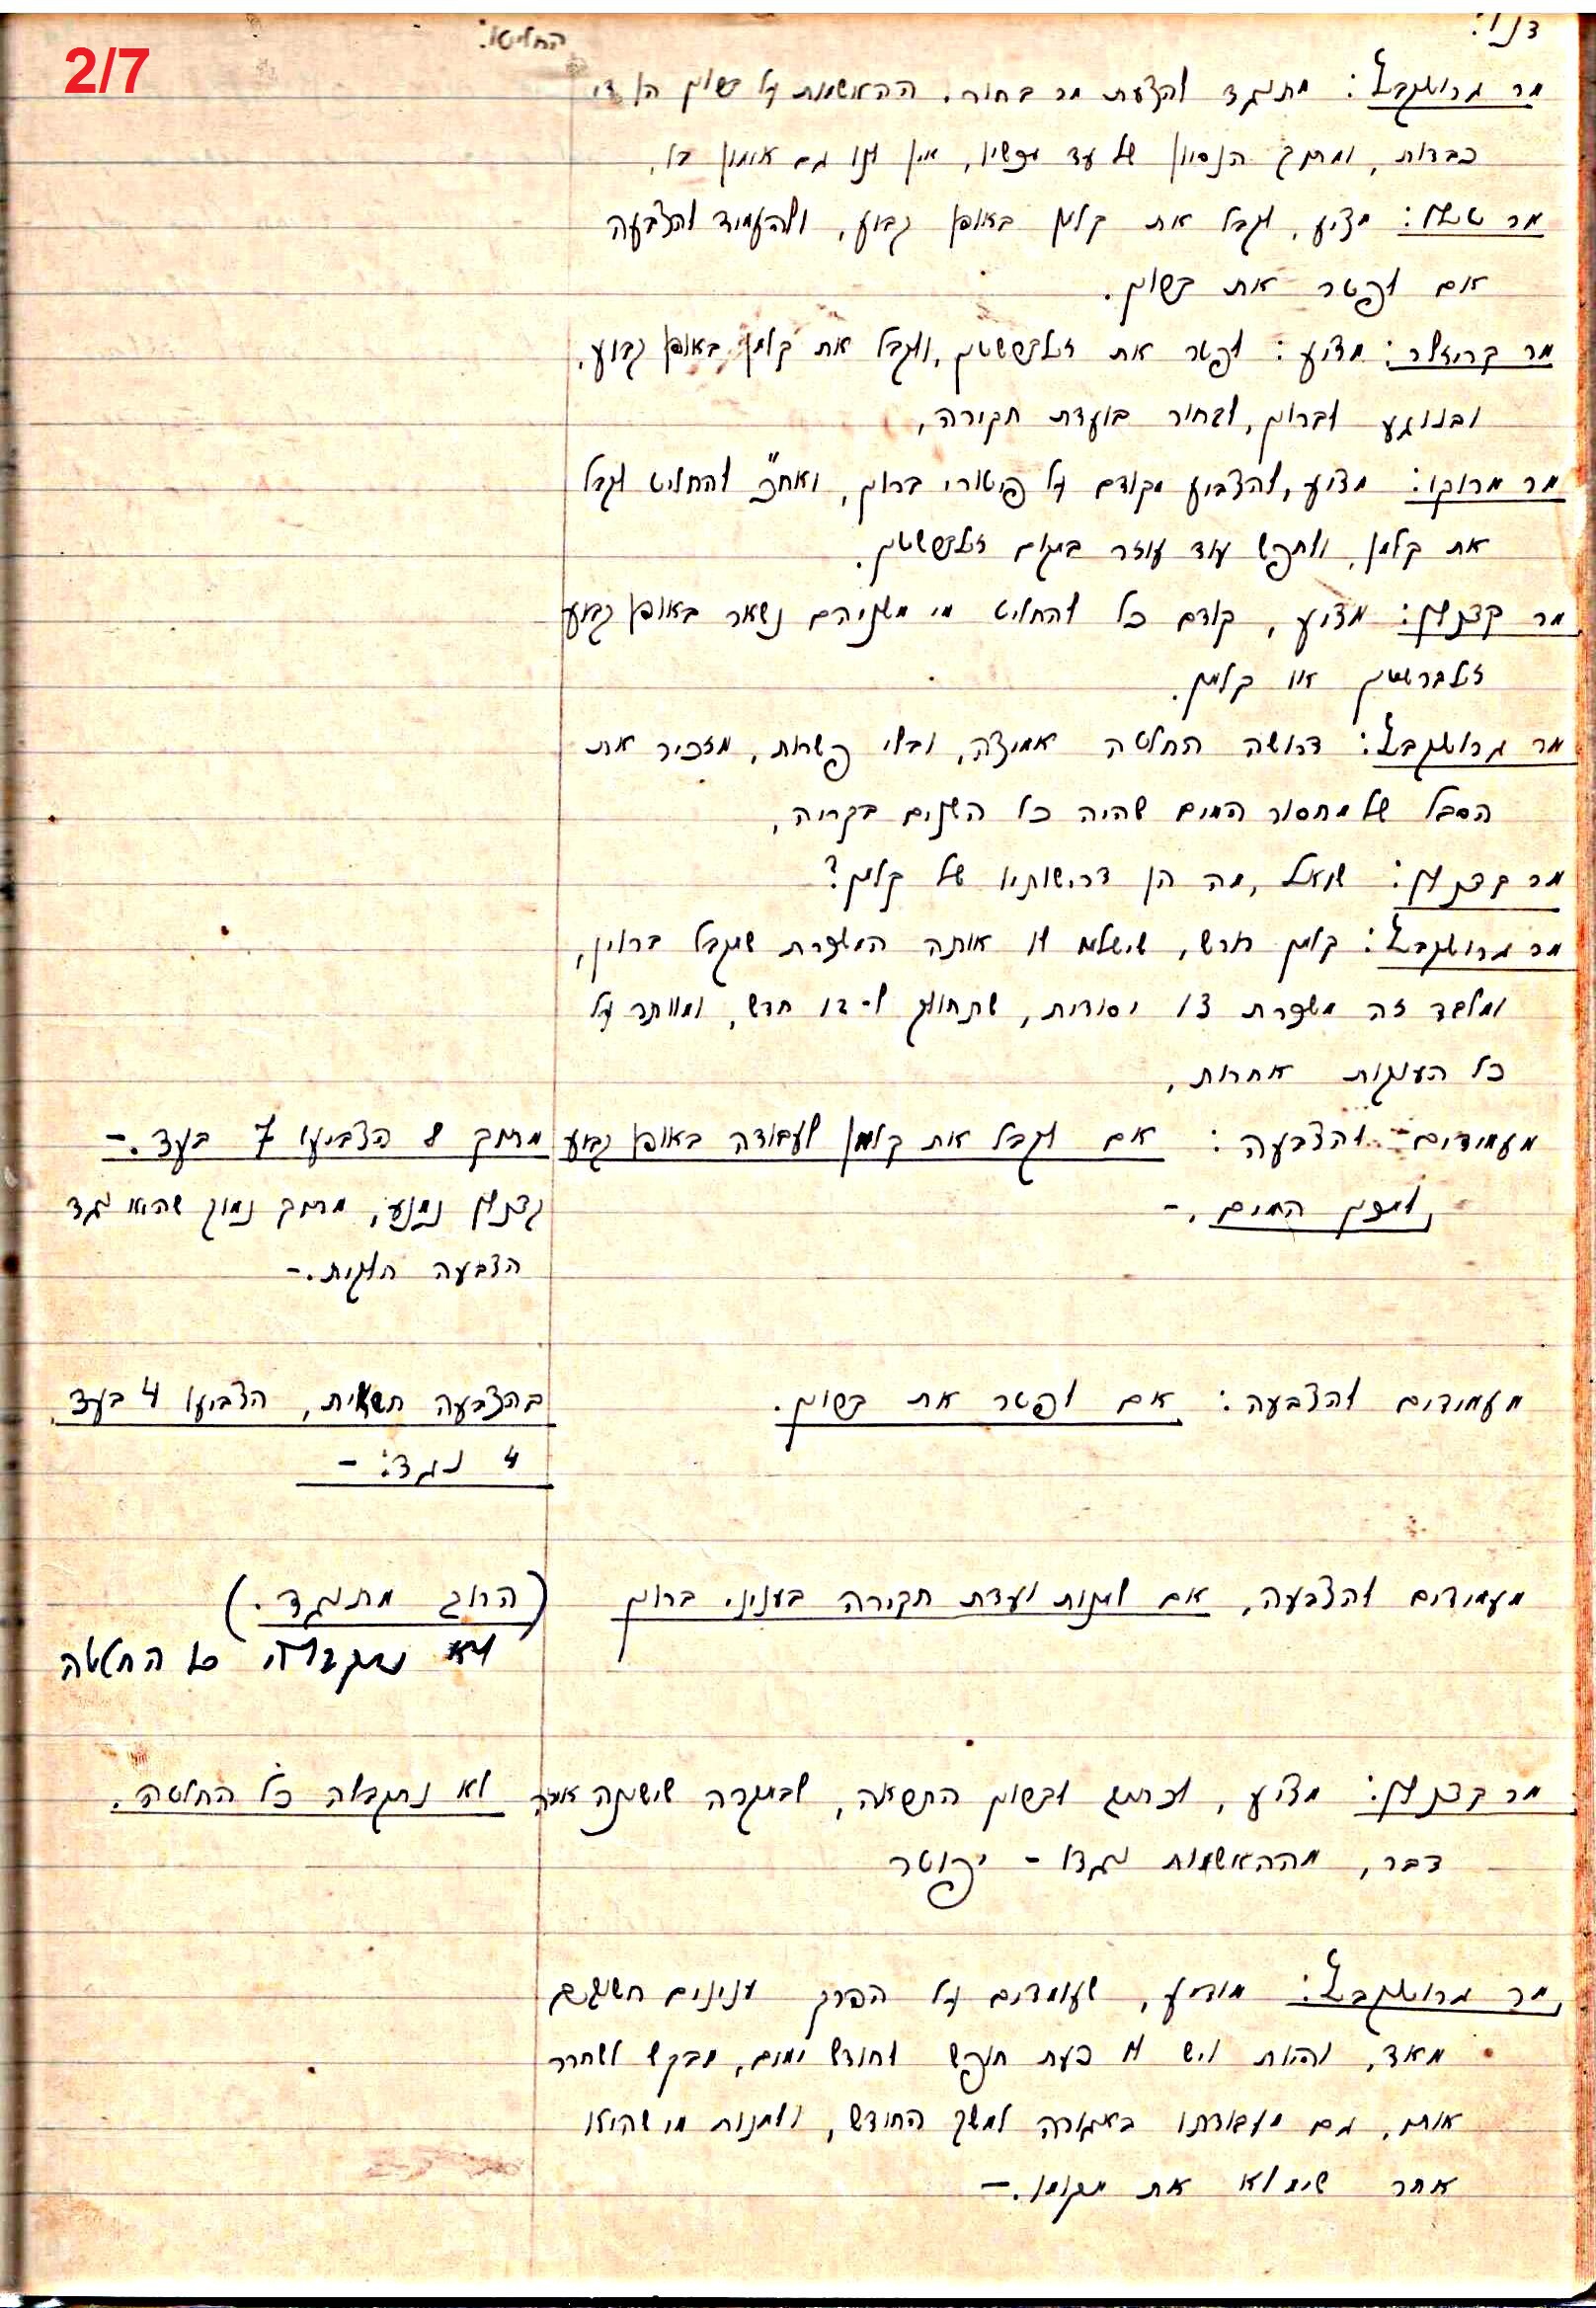 2/7
דנו:
החליטו:
מר גרוסגבלט: מתנגד להצעת מר בחור. ההאשמות על בשוין הן די
כבדות, ומתוך הנסיון של עד עכשיו, אין לנו גם אימון בו,
מר: מציע, לקבל את קלוין באופן קבוע, ולהעמיד להצבעה
אם לפטר את בשוין.
מר קריזלר: מציע: לפטר את זילברשטיין, ולקבל את קלוין באופן קבוע,
ובנוגע לברוין, לבחור בועדת חקירה,
מר מרוקו: מציע, להצביע מקודם על פיטורי ברוין, ואח"כ להחליט לקבל
את קלוין, ולחפש עוד עוזר במקום זילברשטיין.
מר קצנלסון: מציע, קודם כל להחליט מי משניהם נשאר באופן קבוע
זילברשטיין או קלוין.
מר: דרושה החלטה אמיצה, ובלי פשרות, מזכיר את
הסבל של מחסור המים שהיה כל השנים בקריה,
מר: שואל, מה הן דרישותיו של קלוין?
מר: קלוין דורש, שישלמו לו אותה המשכורת שקבל ברוין,
ומלבד זה משכורת 13 יסודית, שתחולק ל-12 חדש, ומוותר על
כל הענקות אחרות,
מעמידים להצבעה: אם לקבל את קלוין לעבודה באופן קבוע
למכון המים.-
מתוך 8 הצביעו 7 בעד.-
נמנע, מתוך נמוק שהוא נגד
הצבעה חלקית.-
מעמידים להצבעה: אם לפטר את בשוין.
בהצבעה חשאית, הצביעו 4 בעד
4 נגד:-
מעמידים להצבעה, אם למנות ועדת חקירה בעניני ברוין
(הרוב מתנגד.)
לא נתקבלה כל החלטה
מר: מציע, לכתוב לבשוין התראה, שבמקרה שישנה איזה
דבר, מההאשמות נגדו - יפוטר
לא נתקבלה כל החלטה.
מר: מודיע, שעומדים על הפרק ענינים חשובים
מאד, והיות ויש לו כעת חופש לחודש ימים, מבקש לשחרר
אותו, גם מעבודתו באגודה למשך החודש, ולמנות מי שהוא
אחר שימלא את מקומו.-